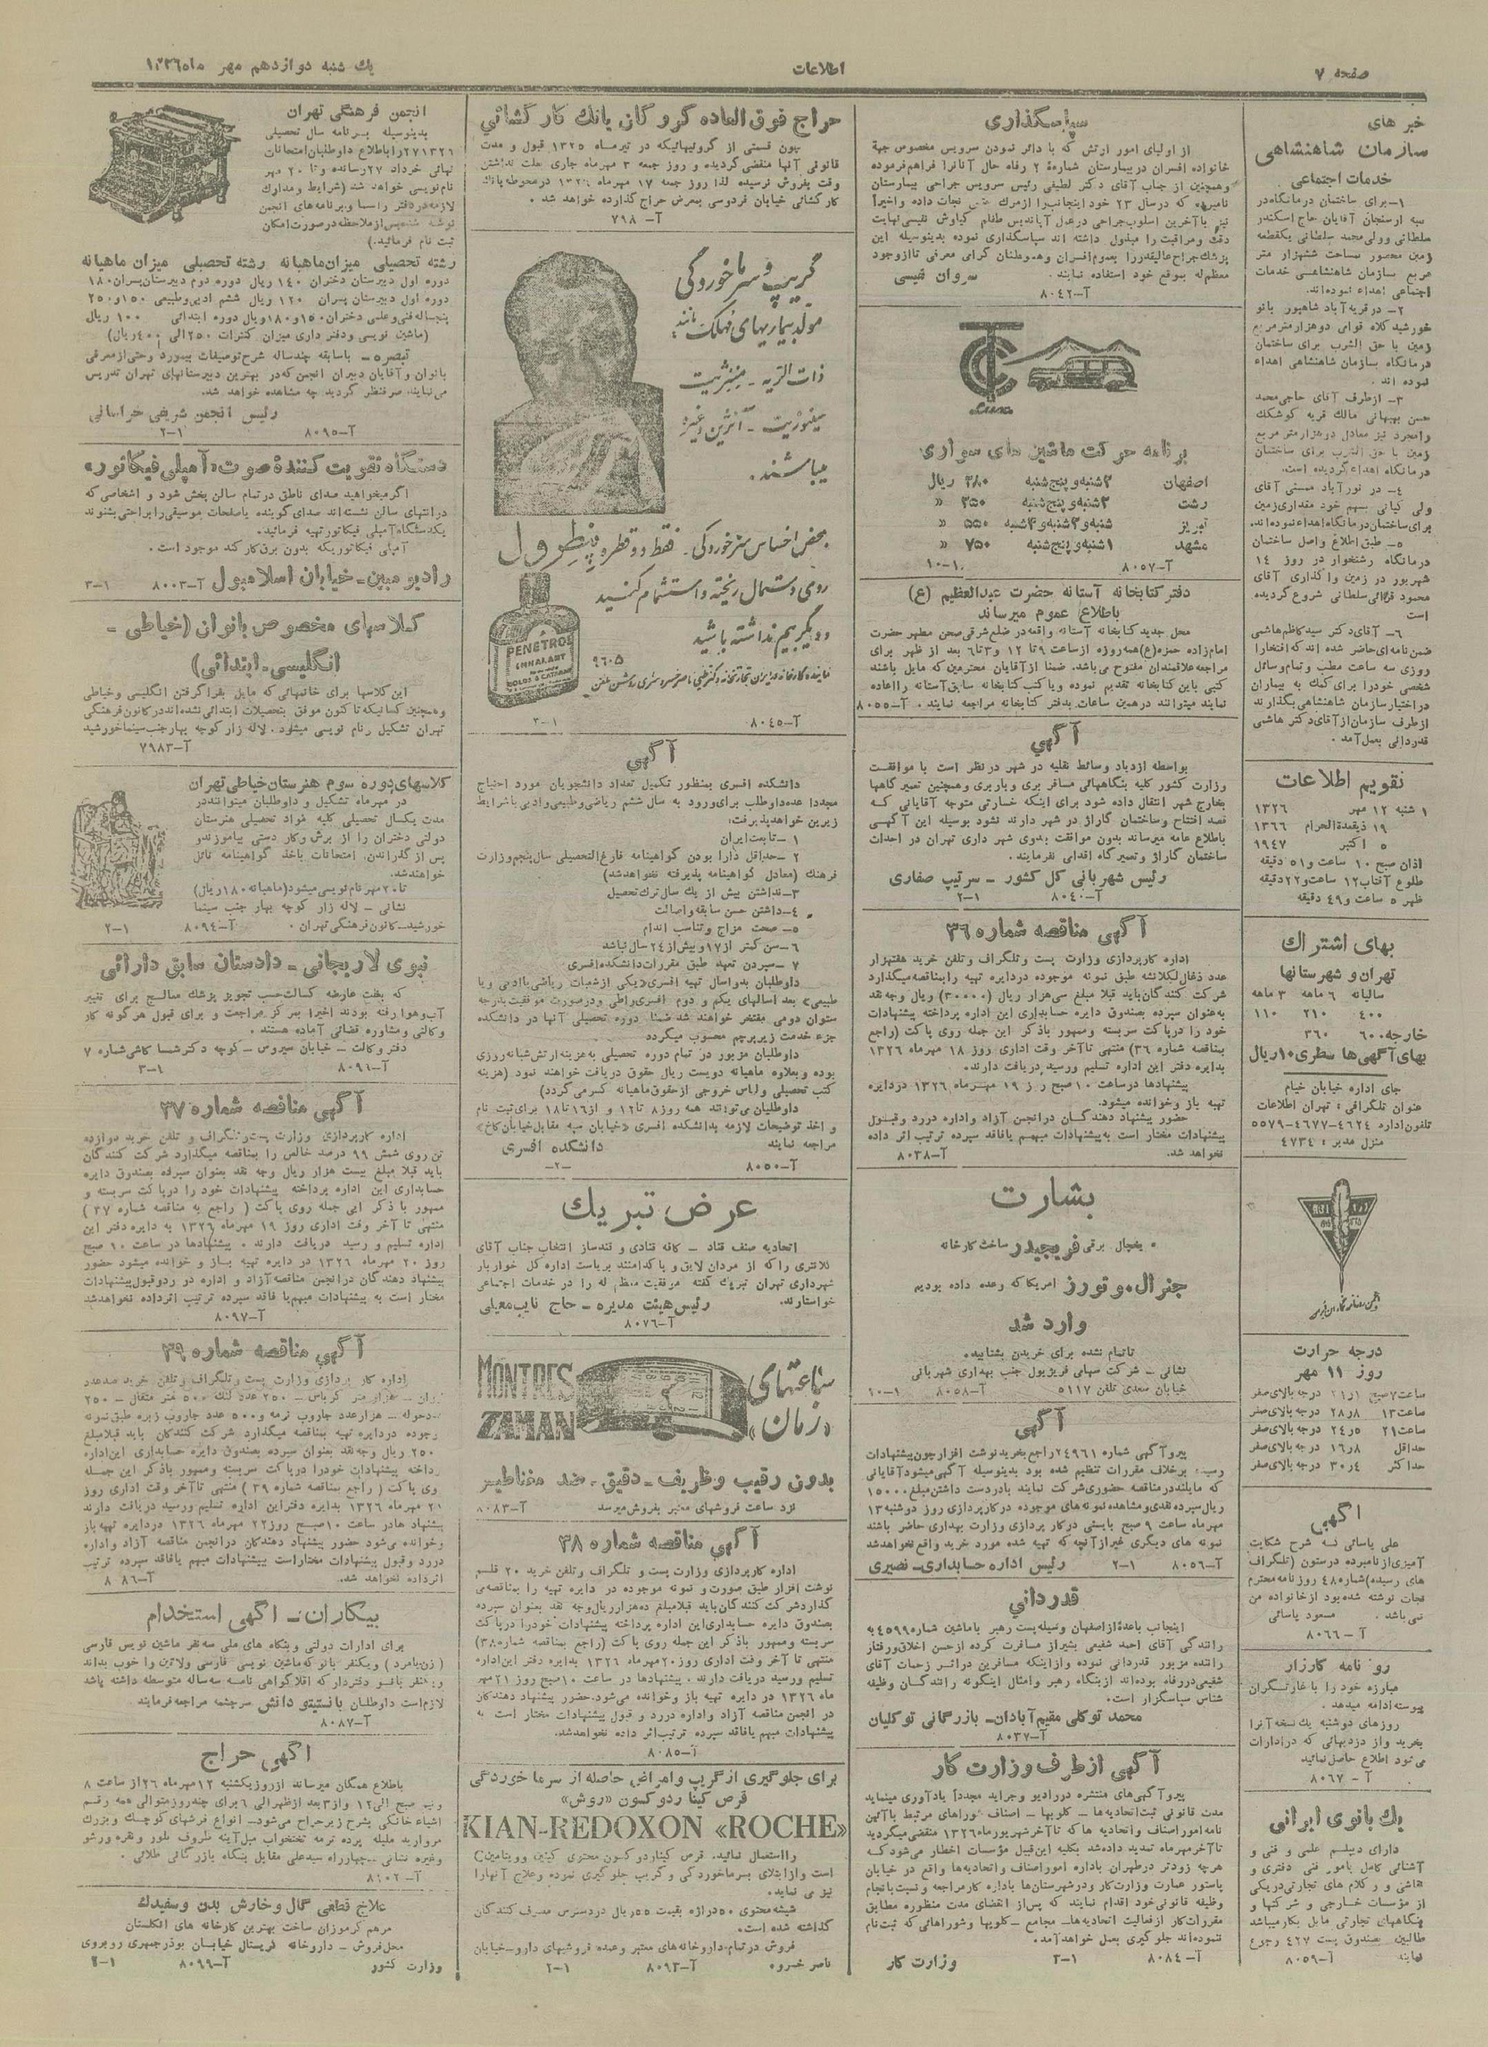 صفحه ۷
اطلاعات
یك شنبه دوازدهم مهر ماه ۱۳۲۶
خبر های
سازمان شاهنشاهی
خدمات اجتماعی
۱ــ برای ساختمان درمانگاه در
سلطانی وولی محمد سلطانی یکقطعه
زمین محصور بمساحت ششهزار متر
مربع بسازمان شاهنشاهی خدمات
اجتماعی اهداء نموده‌اند.
۲ــ در قریه آباد شاهپور بانو
خورشید کلاه قوامی دوهزار متر مربع
زمین با حق الشرب برای ساختمان
درمانگاه بسازمان شاهنشاهی اهداء
نموده اند.
۳ــ ازطرف آقای حاجی محمد
حسن بهبهانی مالك قریه کوشكك
رامجرد نیز معادل دوهزار متر مربع
زمین با حق الشرب برای ساختمان
درمانگاه اهداء گردیده است.
۴ــ در نورآباد ممسنی آقای
ولی کیانی سهم خود مقداری زمین
برای ساختمان درمانگاه اهداء نموده‌اند.
۵ــ طبق اطلاع واصل ساختمان
درمانگاه رشتخوار در روز ۱۴
شهریور در زمین واگذاری آقای
محمود قرائی سلطانی شروع گردیده
است
۶ــ آقای دکتر سید کاظم هاشمی
ضمن نامه‌ای حاضر شده اند که افتخارا
روزی سه ساعت مطب و تمام وسائل
شخصی خود را برای کمك به بیماران
در اختیار سازمان شاهنشاهی بگذارند
ازطرف سازمان از آقای دکتر هاشمی
قدردانی بعمل آمد.
تقویم اطلاعات
۱ شنبه ۱۲ مهر ۱۳۲۶
۱۹ ذیقعدة الحرام ۱۳۶۶
۵ اکتبر ۱۹۴۷
اذان صبح ۱۰ ساعت و ۵۱ دقیقه
طلوع آفتاب ۱۲ ساعت و ۲۲ دقیقه
ظهر ۵ ساعت و ۴۹ دقیقه
بهای اشتراك
تهران و شهرستانها
سالیانه ۶ ماهه ۳ ماهه
۴۰۰ ۲۱۰ ۱۱۰
خارجه ۶۰۰ ۳۶۰
بهای آگهی‌ها سطری ۱۰ ریال
جای اداره خیابان خیام
عنوان تلگرافی: تهران اطلاعات
تلفون اداره ۴۶۲۴-۴۶۷۷-۵۵۷۹
منزل مدیر: ۴۷۳۴
درجه حرارت
روز ۱۱ مهر
ساعت ۷ صبح ۲۱٫۱ درجه بالای صفر
ساعت ۱۳ ۲۸٫۸ درجه بالای صفر
ساعت ۲۱ ۲۴٫۵ درجه بالای صفر
حداقل ۱۶٫۸ درجه بالای صفر
حداکثر ۳۰٫۴ درجه بالای صفر
آگهی
علی یاسائی که شرح شکایت
آمیزی از نامبرده درستون (تلگراف
های رسیده) شماره ۴۸ روزنامه محترم
نجات نوشته شده بود از خانواده من
نمی‌باشد. مسعود یاسائی
آ ــ ۸۰۶۶
روزنامه کارزار
مبارزه خود را با غارتگران
پیوسته ادامه میدهد.
روزهای دوشنبه یك نسخه آنرا
بخرید و از دزدیهائی که در ادارات
می‌شود اطلاع حاصل نمائید
آ ــ ۸۰۶۷
یك بانوی ایرانی
دارای دیپلم علمی و فنی و
آشنائی کامل بامور فنی دفتری و
از مؤسسات خارجی و شرکتها و
بنگاههای تجارتی مایل بکار میباشد
طالبین بصندوق پست ۴۲۷ رجوع
نمایند آ-۸۰۵۹
سپاسگذاری
از اولیای امور ارتش که با دائر نمودن سرویس مخصوص جهة
خانواده افسران در بیمارستان شمارهٔ ۲ رفاه حال آنانرا فراهم فرموده
وهمچنین از جناب آقای دکتر لطیفی رئیس سرویس جراحی بیمارستان
نامبرده که در سال ۲۳ خود اینجانب را از مرك حتمی نجات داده و اخیراً
نیز با آخرین اسلوب جراحی در عمل آپاندیس طفلم کیاوش نفیسی نهایت
دقت و مراقبت را مبذول داشته اند سپاسگذاری نموده بدینوسیله این
پزشك جراح عالیقدر را بعموم افسران و هموطنان گرامی معرفی تا از وجود
معظم له بموقع خود استفاده نمایند. سروان نفیسی
آ-۸۰۴۲
TC Luxe
برنامه حرکت ماشین های سواری
اصفهان ۲شنبه و پنج شنبه ۲۸۰ ریال
رشت ۲شنبه و پنج شنبه ۲۵۰ «
تبریز شنبه و ۲شنبه و ۴شنبه ۵۵۰ «
مشهد ۱شنبه و پنج شنبه ۷۵۰ «
آ-۸۰۵۷ ۱-۱۰
دفتر کتابخانه آستانه حضرت عبدالعظیم (ع)
باطلاع عموم میرساند
محل جدید کتابخانه آستانه واقعه در ضلع شرقی صحن مطهر حضرت
امام‌زاده حمزه (ع) همه روزه از ساعت ۹ تا ۱۲ و ۳ تا ۶ بعد از ظهر برای
مراجعه علاقمندان مفتوح می‌باشد. ضمنا از آقایان محترمین که مایل باشند
کتبی باین کتابخانه تقدیم نموده و یا کتب کتابخانه سابق آستانه را اعاده
نمایند میتوانند در همین ساعات بدفتر کتابخانه مراجعه نمایند. آ-۸۰۵۵
آگهی
بواسطه ازدیاد وسائط نقلیه در شهر در نظر است با موافقت
وزارت کشور کلیه بنگاههائی مسافر بری و باربری و همچنین تعمیر گاهها
بخارج شهر انتقال داده شود برای اینکه خسارتی متوجه آقایانی که
قصد افتتاح و ساختمان گاراژ در شهر دارند نشود بوسیله این آگهی
باطلاع عامه میرساند بدون موافقت بدوی شهر داری تهران در احداث
ساختمان گاراژ و تعمیر گاه اقدامی نفرمایند.
رئیس شهربانی کل کشور ــ سرتیپ صفاری
آ-۸۰۴۰ ۱-۲
آگهی مناقصه شماره ۳۶
اداره کارپردازی وزارت پست و تلگراف و تلفن خرید هفتهزار
عدد ذغال لکلانشه طبق نمونه موجوده در دایره تهیه را بمناقصه میگذارد
شرکت کنندگان باید قبلا مبلغ سی‌هزار ریال (۳۰۰۰۰) ریال وجه نقد
به‌عنوان سپرده بصندوق دایره حسابداری این اداره پرداخته پیشنهادات
خود را در پاکت سربسته و ممهور با ذکر این جمله روی پاکت (راجع
بمناقصه شماره ۳۶) منتهی تا آخر وقت اداری روز ۱۸ مهرماه ۱۳۲۶
بدایره دفتر این اداره تسلیم و رسید دریافت دارند.
پیشنهادها در ساعت ۱۰ صبح روز ۱۹ مهرماه ۱۳۲۶ در دایره
تهیه باز و خوانده میشود.
حضور پیشنهاد دهندگان در انجمن آزاد و اداره در رد و قبول
پیشنهادات مختار است به پیشنهادات مبهم یا فاقد سپرده ترتیب اثر داده
نخواهد شد. آ-۸۰۳۸
بشارت
یخچال برقی فریجیدر ساخت کارخانه
جنرال موتورز امریکا که وعده داده بودیم
وارد شد
تا تمام نشده برای خریدن بشتابید.
نشانی ــ شرکت سهامی فریزیول جنب بهداری شهربانی
خیابان سعدی تلفن ۵۱۱۷ آ-۸۰۵۸ ۱-۱۰
آگهی
پیرو آگهی شماره ۲۴۹۶۱ راجع بخرید نوشت افزار چون پیشنهادات
رسیده برخلاف مقررات تنظیم شده بود بدینوسیله آگهی میشود آقایانی
که مایلند در مناقصه حضوری شرکت نمایند با در دست داشتن مبلغ ۱۵۰۰۰
ریال سپرده نقدی و مشاهده نمونه های موجوده در کارپردازی روز دوشنبه ۱۳
مهرماه ساعت ۹ صبح بایستی در کار پردازی وزارت بهداری حاضر باشند
نمونه های دیگری غیر از آنچه که تهیه شده مورد خرید واقع نخواهد شد
آ-۸۰۵۶ ۱-۲ رئیس اداره حسابداری ــ نصیری
قدردانی
اینجانب با عده‌ای از اصفهان وسیله پست رهبر با ماشین شماره ۴۵۹۹ به
رانندگی آقای احمد شفیعی بشیراز مسافرت کرده از حسن اخلاق و رفتار
راننده مزبور قدردانی نموده و از اینکه مسافرین در اثر زحمات آقای
شفیعی در رفاه بوده‌اند از بنگاه رهبر و امثال اینگونه رانندگان وظیفه
شناس سپاسگزار است.
محمد توکلی مقیم آبادان ــ بازرگانی توکلیان
آ-۸۰۳۷
آگهی از طرف وزارت کار
پیرو آگهی‌های منتشره در رادیو و جراید مجدداً یادآوری مینماید
مدت قانونی ثبت اتحادیه‌ها ــ کلوپها ــ اصناف شوراهای مرتبط با آئین
نامه امور اصناف و اتحادیه ها که تا آخر شهریور ماه ۱۳۲۶ منقضی میگردید
تا آخر مهرماه تمدید داده شد بکلیه این قبیل مؤسسات اخطار می‌شود که
هرچه زودتر در طهران باداره امور اصناف و اتحادیه‌ها واقع در خیابان
پاستور عمارت وزارت کار و در شهرستان‌ها باداره کار مراجعه و نسبت بانجام
وظیفه قانونی خود اقدام نمایند که پس از انقضای مدت منظوره مطابق
مقررات کار از فعالیت اتحادیه‌ها ــ مجامع ــ کلوپها و شوراهائی که ثبت نام
ننموده‌اند جلوگیری بعمل خواهد آمد.
آ-۸۰۸۴ ۱-۳ وزارت کار
حراج فوق العاده گروگان بانك کارگشائی
چون قسمتی از گروئیهائیکه در تیرماه ۱۳۲۵ قبول و مدت
قانونی آنها منقضی گردیده و روز جمعه ۳ مهرماه جاری بعلت نداشتن
وقت بفروش نرسیده لذا روز جمعه ۱۷ مهرماه ۱۳۲۶ در محوطه بانك
کارگشائی خیابان فردوسی بمعرض حراج گذارده خواهد شد.
آ-۷۹۸
گریپ و سرماخوردگی
مولد بیماریهای مهلک مانند
ذات الریه ــ مننژیت
سینوزیت ــ آنژین و غیره
میباشند.
بمحض احساس سرماخوردگی. فقط دو قطره پنطرول
روی دستمال ریخته و استشمام کنید
و دیگر بیم نداشته باشید
PENETROL
INHALANT
COLDS & CATARRH
آ-۸۰۴۵ ۱-۲
آگهی
دانشکده افسری بمنظور تکمیل تعداد دانشجویان مورد احتیاج
مجددا عده‌ داوطلب برای ورود به سال ششم ریاضی و طبیعی و ادبی با شرایط
زیرین خواهد پذیرفت:
۱ ــ تابعیت ایران
۲ ــ حداقل دارا بودن گواهینامه فارغ التحصیلی سال پنجم وزارت
فرهنك (معادل گواهینامه پذیرفته نخواهد شد)
۳ ــ نداشتن بیش از یك سال ترك تحصیل
۴ ــ داشتن حسن سابقه و اصالت
۵ ــ صحت مزاج و تناسب اندام
۶ ــ سن کمتر از ۱۷ و بیش از ۲۴ سال نباشد
۷ ــ سپردن تعهد طبق مقررات دانشکده افسری
داوطلبان بدو اسال تهیه افسری «یکی از شعبات ریاضی یا ادبی و یا
طبیعی» بعد اسالهای یکم و دوم افسری را طی و در صورت موفقیت بدرجه
ستوان دومی مفتخر خواهند شد ضمنا دوره تحصیلی آنها در دانشکده
جزء خدمت زیر پرچم محسوب میگردد
داوطلبان مزبور در تمام دوره تحصیلی به هزینه ارتش شبانه روزی
بوده و بعلاوه ماهیانه دویست ریال حقوق دریافت خواهند نمود (هزینه
کتب تحصیلی و لباس خروجی از حقوق ماهیانه کسر می‌گردد)
داوطلبان می‌توانند همه روز ۸ تا ۱۲ و از ۱۶ تا ۱۸ برای ثبت نام
و اخذ توضیحات لازمه بدانشکده افسری «خیابان سپه مقابل خیابان کاخ»
مراجعه نمایند دانشکده افسری
آ-۸۰۵۰ -۲-
عرض تبریك
اتحادیه صنف قناد ــ کافه قنادی و قندساز انتخاب جناب آقای
کلانتری را که از مردان لایق و پاکدامنند بریاست اداره کل خواربار
شهرداری تهران تبریك گفته موفقیت معظم له را در خدمات اجتماعی
خواستارند. رئیس هیئت مدیره ــ حاج نایب معیلی
آ-۸۰۷۶
MONTRES
ZAMAN
ساعتهای
«زمان»
بدون رقیب و ظریف ــ دقیق ــ ضد مغناطیس
نزد ساعت فروشهای معتبر بفروش میرسد آ-۸۰۸۳
آگهی مناقصه شماره ۳۸
اداره کارپردازی وزارت پست و تلگراف و تلفن خرید ۲۰ قلم
نوشت افزار طبق صورت و نمونه موجوده در دایره تهیه را بمناقصه می
گذارد شرکت کنندگان باید قبلا مبلغ ده هزار ریال وجه نقد بعنوان سپرده
بصندوق دایره حسابداری این اداره پرداخته پیشنهادات خود را در پاکت
سربسته و ممهور با ذکر این جمله روی پاکت (راجع بمناقصه شماره ۳۸)
منتهی تا آخر وقت اداری روز ۲۰ مهرماه ۱۳۲۶ بدایره دفتر این اداره
تسلیم و رسید دریافت دارند. پیشنهادها در ساعت ۱۰ صبح روز ۲۱ مهر
ماه ۱۳۲۶ در دایره تهیه باز و خوانده می‌شود. حضور پیشنهاد دهندگان
در انجمن مناقصه آزاد و اداره در رد و قبول پیشنهادات مختار است به
پیشنهادات مبهم یا فاقد سپرده ترتیب اثر داده نخواهد شد.
آ-۸۰۸۵
برای جلوگیری از گریپ و امراض حاصله از سرماخوردگی
قرص کینا ردوکسون «روش»
KIAN-REDOXON «ROCHE»
را استعمال نمائید. قرص کیناردوکسون محتوی کینین و ویتامین C
است و از ابتلای بسرماخوردگی و گریپ جلوگیری نموده و علاج آنها را
نیز می نماید.
شیشه محتوی ۵۰ دراژه بقیمت ۵۵ ریال در دسترس مصرف کنندگان
گذاشته شده است.
فروش در تمام داروخانه‌های معتبر و عمده فروشهای دارو ــ خیابان
ناصر خسرو. آ-۸۰۹۳ ۱-۲
انجمن فرهنگی تهران
بدینوسیله برنامه سال تحصیلی
۲۷۱۳۲۶ را باطلاع داوطلبان امتحانات
نهائی خرداد ۲۷ رسانده و تا ۲۰ مهر
نام‌نویسی خواهد شد (شرایط و مدارك
لازمه در دفتر راسما و برنامه های انجمن
نوشته شده پس از ملاحظه در صورت امکان
ثبت نام فرمائید.)
رشته تحصیلی میزان ماهیانه رشته تحصیلی میزان ماهیانه
دوره اول دبیرستان دختران ۱۴۰ ریال دوره دوم دبیرستان پسران ۱۸۰
دوره اول دبیرستان پسران ۱۲۰ ریال ششم ادبی و طبیعی ۱۵۰ و ۲۵۰
پنجساله فنی و علمی دختران ۱۵۰ و ۱۸۰ ریال دوره ابتدائی ۱۰۰ ریال
(ماشین نویسی و دفتر داری میزان کنترات ۲۵۰ الی ۴۰۰ ریال)
تبصره ــ باسابقه چند ساله شرح توصیفات بیمورد و حتی از معرفی
بانوان و آقایان دبیران انجمن که در بهترین دبیرستانهای تهران تدریس
می‌نمایند صرفنظر گردید چه مشاهده خواهد شد.
رئیس انجمن شریفی خراسانی
آ-۸۰۹۵ ۱-۲
دستگاه تقویت کنندهٔ صوت «آمپلی فیکاتور»
اگر میخواهید صدای ناطق در تمام سالن پخش شود و اشخاصی که
در انتهای سالن نشسته‌اند صدای گوینده یا صفحات موسیقی را براحتی بشنوند
یکدستگاه آمپلی فیکاتور تهیه فرمائید.
آمپلی فیکاتوریکه بدون برق کار کند موجود است.
رادیو مبین ــ خیابان اسلامبول آ-۸۰۰۳ ۱-۳
کلاسهای مخصوص بانوان (خیاطی ــ
انگلیسی ــ ابتدائی)
این کلاسها برای خانمهائی که مایل بفرا گرفتن انگلیسی و خیاطی
و همچنین کسانیکه تا کنون موفق بتحصیلات ابتدائی نشده‌اند در کانون فرهنگی
تهران تشکیل و نام نویسی میشود. لاله زار کوچه بهار جنب سینما خورشید
آ-۷۹۸۳
کلاسهای دوره سوم هنرستان خیاطی تهران
در مهرماه تشکیل و داوطلبان میتوانند در
مدت یکسال تحصیلی کلیه مواد تحصیلی هنرستان
دولتی دختران را از برش و کار دستی بیاموزند و
پس از گذراندن امتحانات باخذ گواهینامه نائل
خواهند شد.
تا ۲۰ مهر نام نویسی میشود (ماهیانه ۱۸۰ ریال)
نشانی ــ لاله زار کوچه بهار جنب سینما
خورشید ــ کانون فرهنگی تهران. آ-۸۰۹۴ ۱-۲
نبوی لاریجانی ــ دادستان سابق دارائی
که بعلت عارضه کسالت حسب تجویز پزشك معالج برای تغییر
آب و هوا رفته بودند اخیراً بمرکز مراجعت و برای قبول هرگونه کار
وکالتی و مشاوره قضائی آماده هستند.
دفتر وکالت ــ خیابان سیروس ــ کوچه دکتر شما کاشی شماره ۷
آ-۸۰۹۱ ۱-۳
آگهی مناقصه شماره ۳۷
اداره کارپردازی وزارت پست و تلگراف و تلفن خرید دوازده
تن روی شمش ۹۹ درصد خالص را بمناقصه میگذارد شرکت کنندگان
باید قبلا مبلغ بیست هزار ریال وجه نقد بعنوان سپرده بصندوق دایره
حسابداری این اداره پرداخته پیشنهادات خود را در پاکت سربسته و
ممهور با ذکر این جمله روی پاکت (راجع به مناقصه شماره ۳۷)
منتهی تا آخر وقت اداری روز ۱۹ مهرماه ۱۳۲۶ به دایره دفتر این
اداره تسلیم و رسید دریافت دارند. پیشنهادها در ساعت ۱۰ صبح
روز ۲۰ مهرماه ۱۳۲۶ در دایره تهیه باز و خوانده میشود حضور
پیشنهاد دهندگان در انجمن مناقصه آزاد و اداره در رد و قبول پیشنهادات
مختار است به پیشنهادات مبهم یا فاقد سپرده ترتیب اثر داده نخواهد شد
آ-۸۰۹۷
آگهی مناقصه شماره ۳۹
اداره کار پردازی وزارت پست و تلگراف و تلفن خرید
متر کرباس ــ ۲۵۰ عدد لنگ ۵۰۰ متر متقال ــ ۲۵۰
حوله ــ هزار عدد جاروب نرمه و ۵۰۰ عدد جاروب زبره طبق نمونه
موجوده در دایره تهیه بمناقصه میگذارد شرکت کنندگان باید قبلا مبلغ
۲۵۰ ریال وجه نقد بعنوان سپرده بصندوق دایره حسابداری این اداره
پرداخته پیشنهادات خود را در پاکت سربسته و ممهور با ذکر این جمله
روی پاکت (راجع بمناقصه شماره ۳۹) منتهی تا آخر وقت اداری روز
مهرماه ۱۳۲۶ بدایره دفتر این اداره تسلیم و رسید دریافت دارند
پیشنهادها در ساعت ۱۰ صبح روز ۲۲ مهرماه ۱۳۲۶ در دایره تهیه باز
و خوانده می‌شود حضور پیشنهاد دهندگان در انجمن مناقصه آزاد و اداره
در رد و قبول پیشنهادات مختار است به پیشنهادات مبهم یا فاقد سپرده ترتیب
اثر داده نخواهد شد. آ-۸۰۸۶
بیکاران ــ آگهی استخدام
برای ادارات دولتی و بنگاه های ملی سه نفر ماشین نویس فارسی
(زن یا مرد) و یکنفر بانو که ماشین نویسی فارسی و لاتین را خوب بداند
و یکنفر بانو دفتر دار که اقلا گواهی نامه سه ساله متوسطه داشته باشد
لازم است داوطلبان با انستیتوی دانش سرچشمه مراجعه فرمایند.
آ-۸۰۸۷
آگهی حراج
باطلاع همگان میرساند از روز یکشنبه ۱۲ مهرماه ۲۶ از ساعت ۸
ونیم صبح الی ۱۲ و از ۳ بعد از ظهر الی ۶ برای چند روز متوالی همه رقم
اشیاء خانگی بشرح زیر حراج می‌شود ــ انواع فرشهای کوچك و بزرك
مروارید ملیله پرده ترمه تختخواب مبل آینه ظروف بلور و نقره ورشو
وغیره نشانی ــ چهارراه سیدعلی مقابل بنگاه بازرگانی طلائی.
آ-۸۱۰۲
علاج قطعی گال و خارش بدن و سفیدك
مرهم کرموزان ساخت بهترین کارخانه های انگلستان
محل فروش ــ داروخانه کریستال خیابان بوذرجمهری روبروی
وزارت کشور آ-۸۰۹۹ ۱-۲